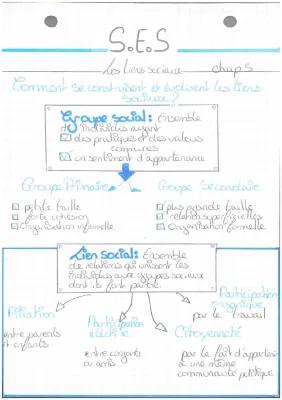 S.E.S
Les liens sociaux chap 5
Comment se construisent et évoluent les liens
sociaux?
Groupe social: Ensemble
d'individus ayant
des pratiques et des valeurs
communes
un sentiment d'appartenance
Groupe Primaire
petite taille
forte cohésion
organisation informelle
Groupe Secondaire
plus grande taille
relation superficielles
organisation formelle
Lien social: Ensemble
de relations qui unissent les
individus aux groupes sociaux
dont ils font partie.
Filiation
entre parents
et enfants
Participation
élective
entre conjoints
ou amis
Citoyenneté
par le fait d'appartenir
à une même
communauté politique
Participation
organique
par le travail